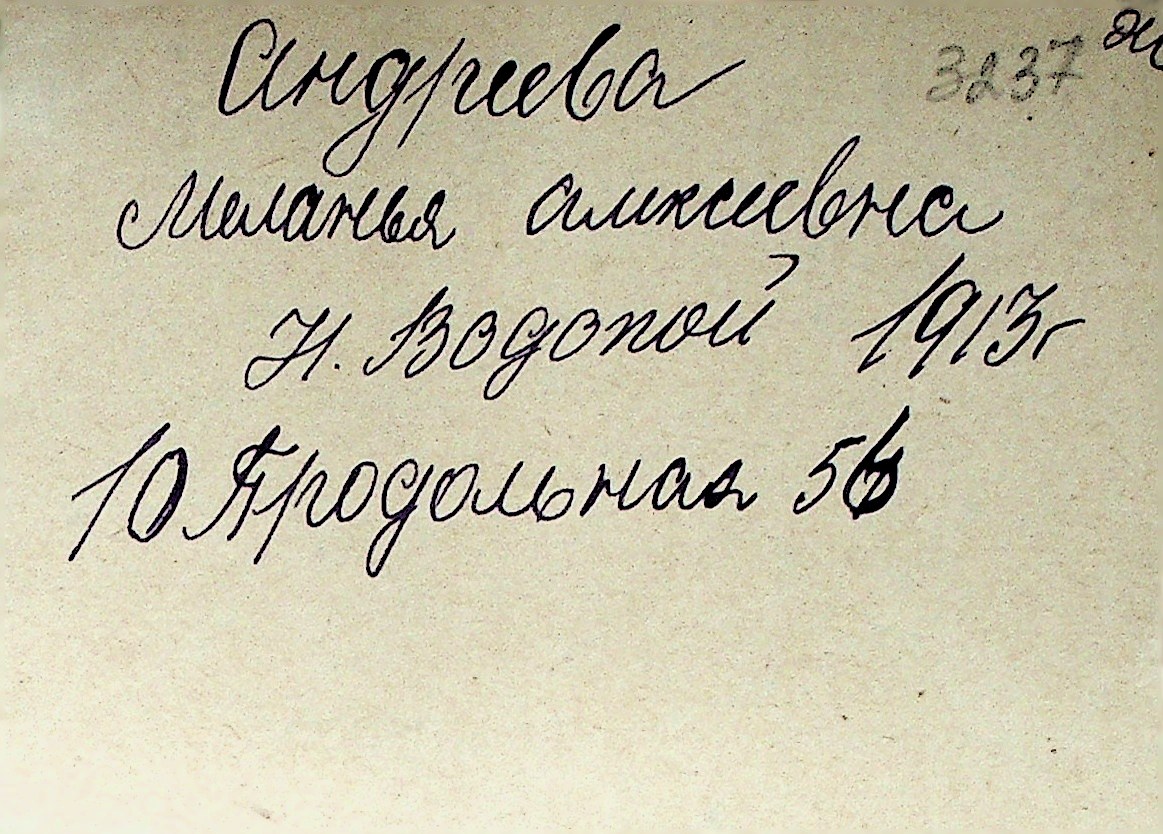 Андреева 3237
Меланья алексеевна
Н. Водопой 1913г
10 Продольная 56